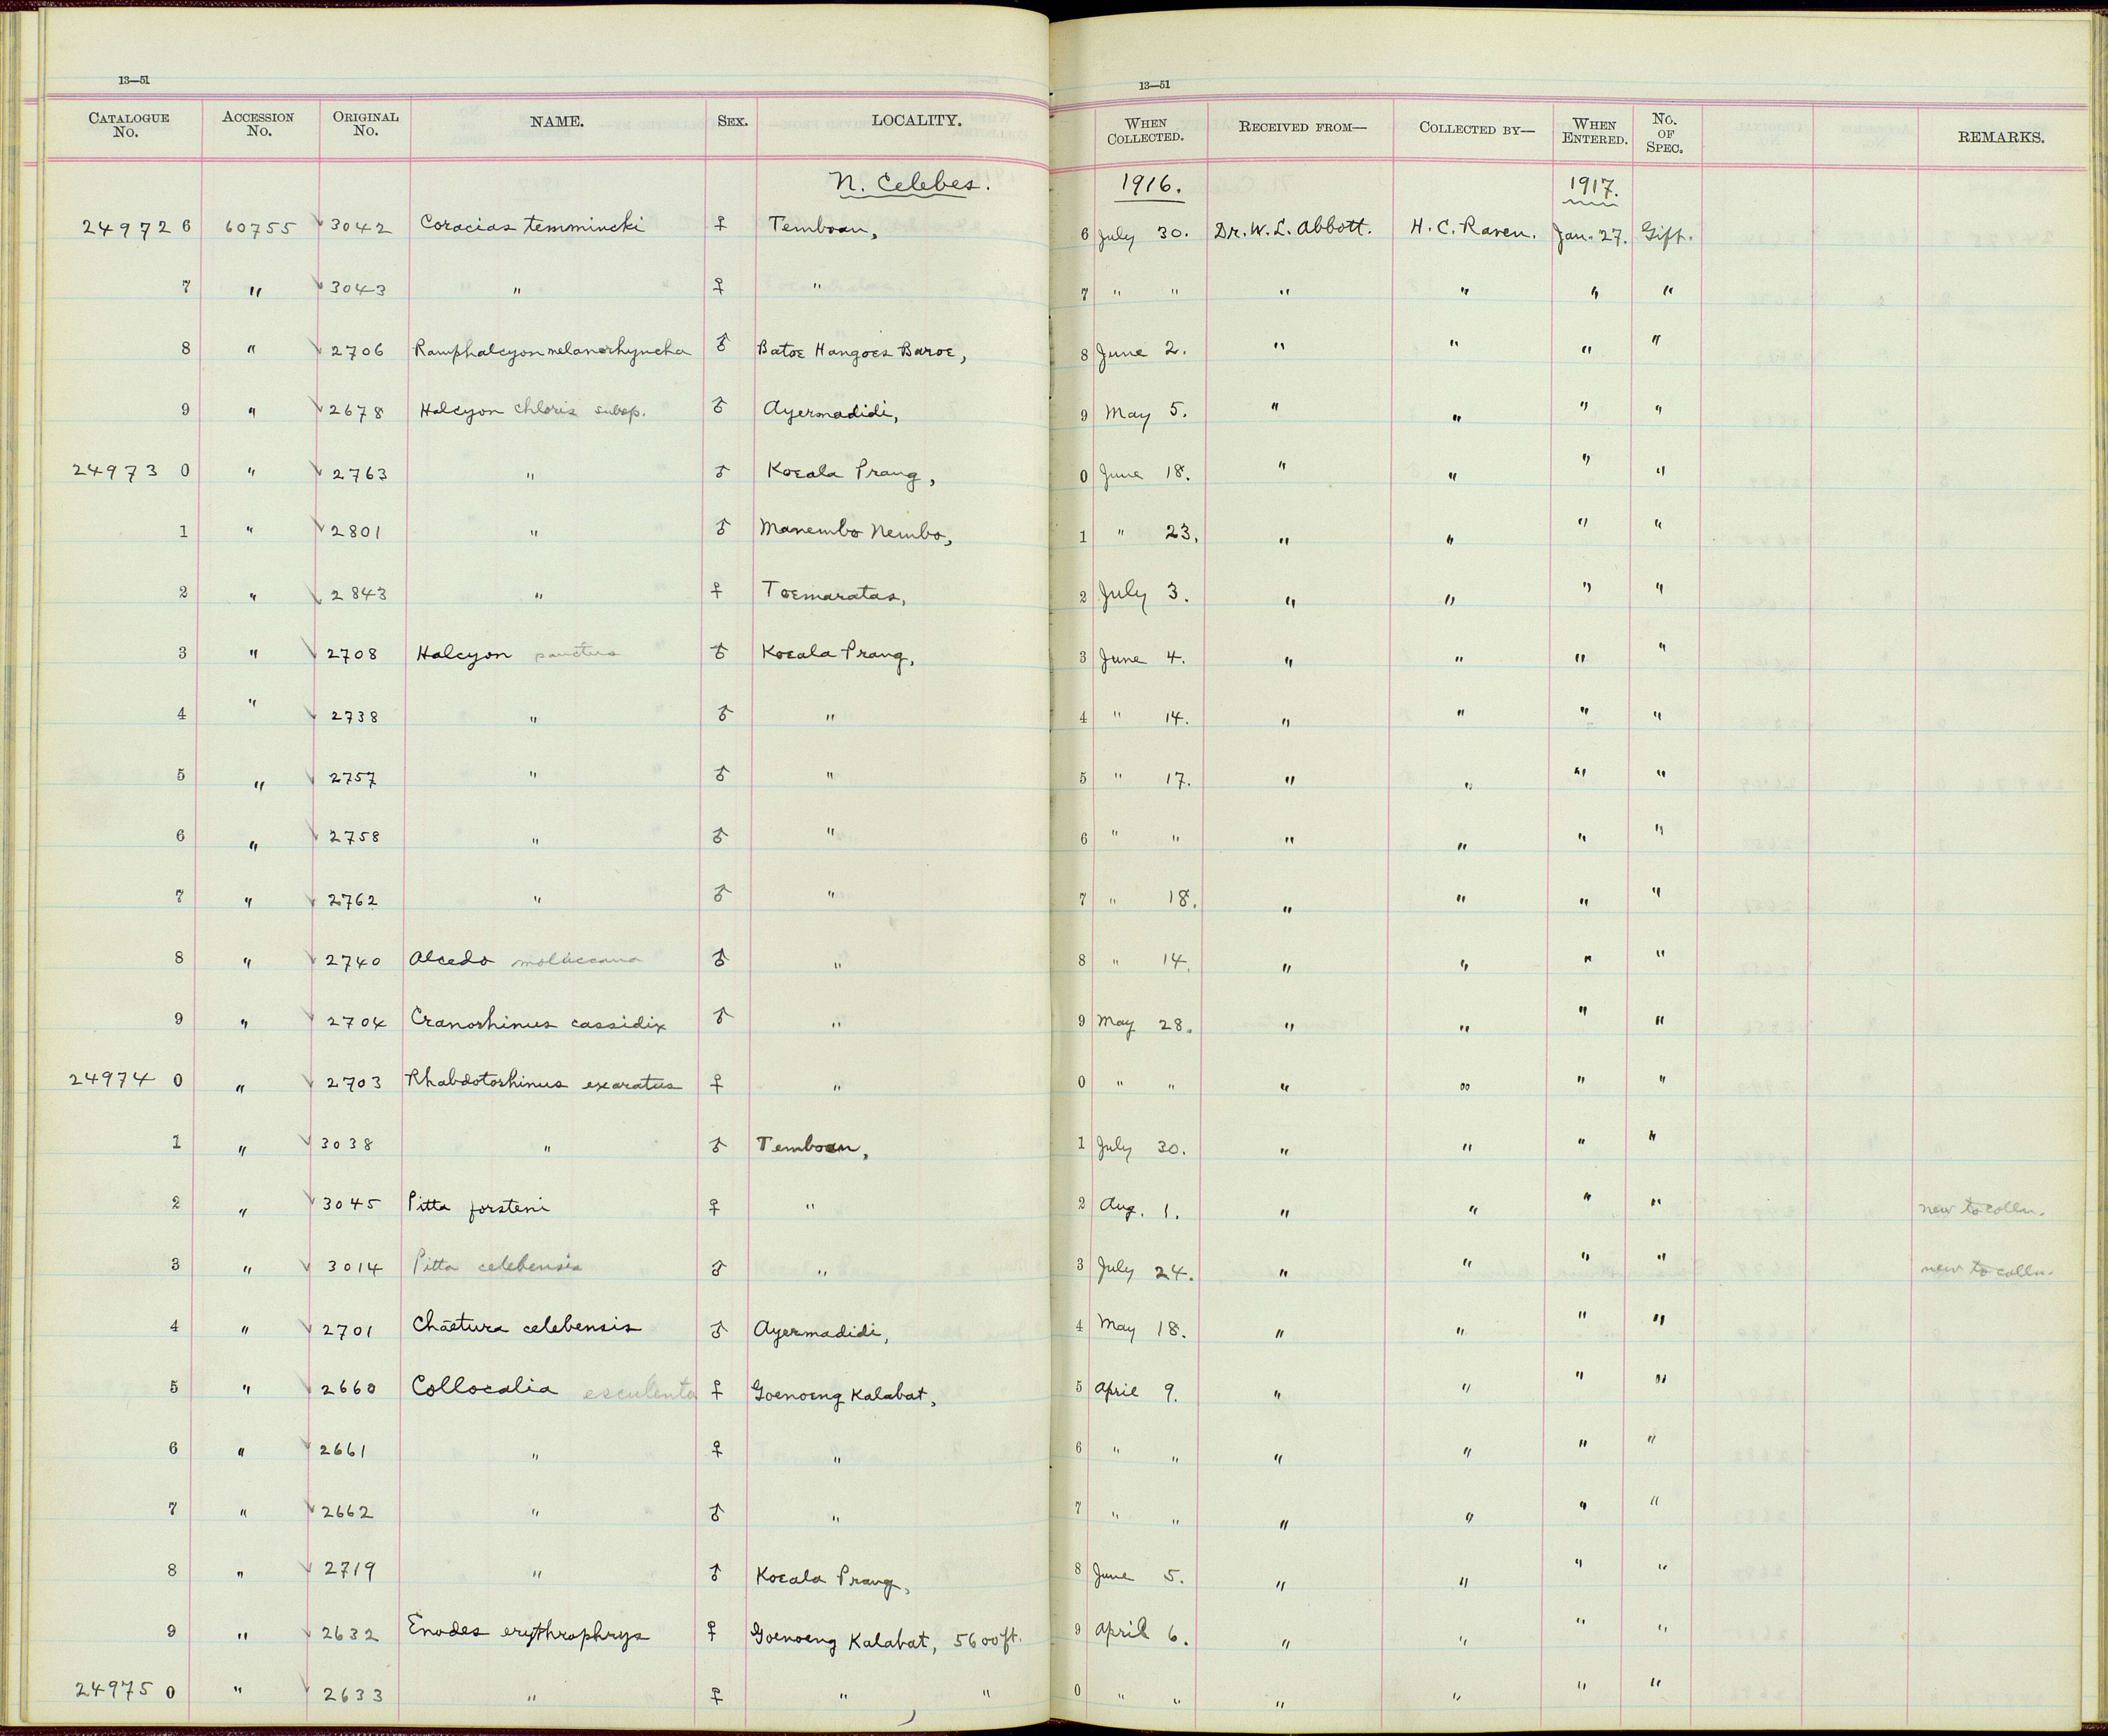 13—51 13—51
CATALOGUE No. ACCESSION No. ORIGINAL No. NAME. SEX. LOCALITY. WHEN COLLECTED. RECEIVED FROM— COLLECTED BY— WHEN ENTERED. No. OF SPEC. REMARKS.
N. Celebes. 1916. 1917.
24972 6 60755 3042 Coracias temmincki ♀ Temboan, 6 July 30. Dr. W. L. Abbott. H. C. Raven. Jan. 27. Gift.
7 " 3043 " ♀ " 7 " " " " " "
8 " 2706 Ramphalcyon melanorhyncha ♂ Batoe Hangoes Baroe, 8 June 2. " " " "
9 " 2678 Halcyon chloris subsp. ♂ Ayermadidi, 9 May 5. " " " "
24973 0 " 2763 " ♂ Koeala Prang, 0 June 18. " " " "
1 " 2801 " ♂ Manembo Nembo, 1 " 23. " " " "
2 " 2843 " ♀ Toemaratas, 2 July 3. " " " "
3 " 2708 Halcyon sanctus ♂ Koeala Prang, 3 June 4. " " " "
4 " 2738 " ♂ " 4 " 14. " " " "
5 " 2757 " ♂ " 5 " 17. " " " "
6 " 2758 " ♂ " 6 " " " " " "
7 " 2762 " ♂ " 7 " 18. " " " "
8 " 2740 Alcedo moluccana ♂ " 8 " 14. " " " "
9 " 2704 Cranorhinus cassidix ♂ " 9 May 28. " " " "
24974 0 " 2703 Rhabdotorhinus exaratus ♀ " 0 " " " " " "
1 " 3038 " ♂ Temboan, 1 July 30. " " " "
2 " 3045 Pitta forsteni ♀ " 2 Aug. 1. " " " " new to colln.
3 " 3014 Pitta celebensis ♂ " 3 July 24. " " " " new to colln.
4 " 2701 Chaetura celebensis ♂ Ayermadidi, 4 May 18. " " " "
5 " 2660 Collocalia esculenta ♀ Goenoeng Kalabat, 5 April 9. " " " "
6 " 2661 " ♀ " 6 " " " " " "
7 " 2662 " ♂ " 7 " " " " " "
8 " 2719 " ♂ Koeala Prang, 8 June 5. " " " "
9 " 2632 Enodes erythrophrys ♀ Goenoeng Kalabat, 5600 ft. 9 April 6. " " " "
24975 0 " 2633 " ♀ " , " 0 " " " " " "